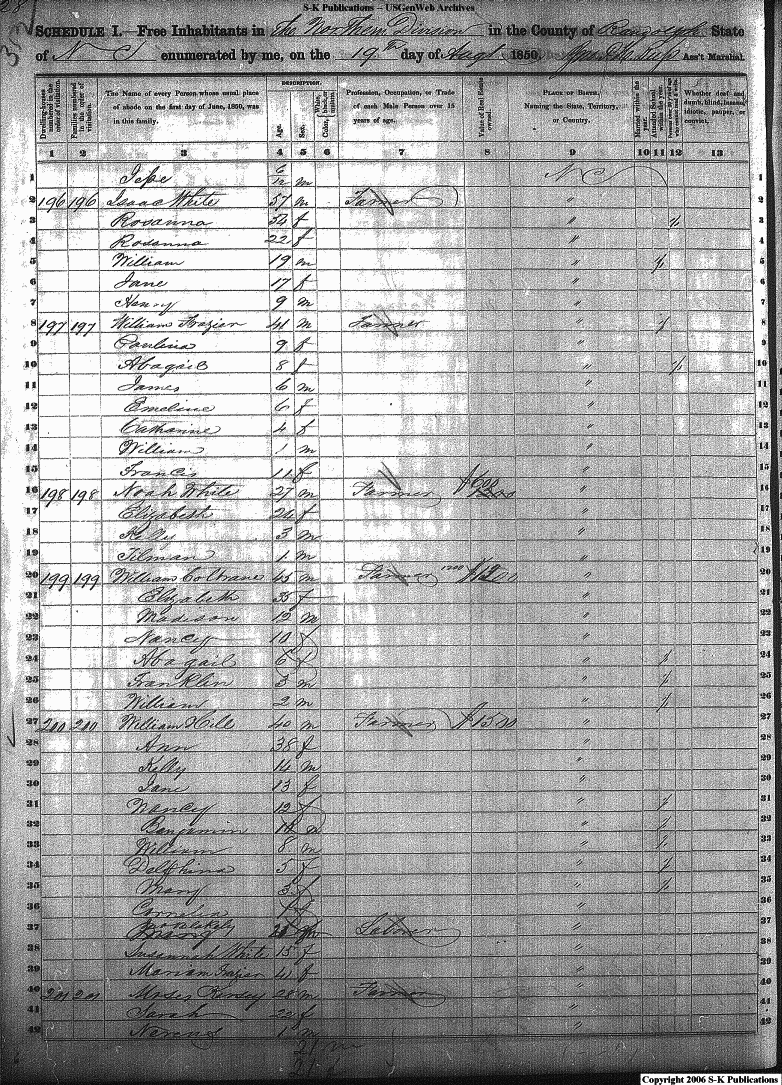 S-K Publications – USGenWeb Archives
SCHEDULE I.—Free Inhabitants in The Northern Division in the County of Randolph State
of N C enumerated by me, on the 19th day of Augt 1850. Ass't Marshal.
Dwelling-houses numbered in the order of visitation.
Families numbered in the order of visitation.
The Name of every Person whose usual place of abode on the first day of June, 1850, was in this family.
DESCRIPTION.
Age.
Sex.
White, black, or mulatto.
Color,
Profession, Occupation, or Trade of each Male Person over 15 years of age.
Value of Real Estate owned.
PLACE OF BIRTH, Naming the State, Territory, or Country.
Married within the year.
Attended School within the year.
Persons over 20 y'rs of age who cannot read & write.
Whether deaf and dumb, blind, insane, idiotic, pauper, or convict.
1 2 3 4 5 6 7 8 9 10 11 12 13
1 Jesse 6/12 m N C 1
2 196 196 Isaac White 57 m Farmer " 2
3 Rosanna 54 f " / 3
4 Rosanna 22 f " 4
5 William 19 m " / 5
6 Jane 17 f " 6
7 Henry 9 m " 7
8 197 197 William Frazier 41 m Farmer " / 8
9 Paulina 9 f " 9
10 Abagail 8 f " / 10
11 James 6 m " 11
12 Emeline 6 f " 12
13 Catharine 4 f " 13
14 William 1 m " 14
15 Francis 11 f " 15
16 198 198 Noah White 27 m Farmer $600 " 16
17 Elizabeth 24 f " 17
18 Kelly 3 m " 18
19 Tilman 1 m " 19
20 199 199 William Coltrane 45 m Farmer 1200 $1200 " 20
21 Elizabeth 35 f " 21
22 Madison 12 m " 22
23 Nancy 10 f " 23
24 Abagail 6 f " / 24
25 Franklin 3 m " / 25
26 William 2 m " / 26
27 200 200 William Hill 40 m Farmer $1500 " 27
28 Ann 38 f " 28
29 Kelly 14 m " 29
30 Jane 13 f " 30
31 Nancy 12 f " / 31
32 Benjamin m " / 32
33 William 8 m " / 33
34 Delphina 5 f " / 34
35 Mary 3 f " / 35
36 Cornelia 1 f " 36
37 Laborer " 37
38 Susannah White 15 f " 38
39 Mariam Frazier 41 f " 39
40 201 201 Moses Kersey 28 m Farmer " 40
41 Sarah 22 f " 41
42 1 m " 42
21 m
21 f
Copyright 2006 S-K Publications